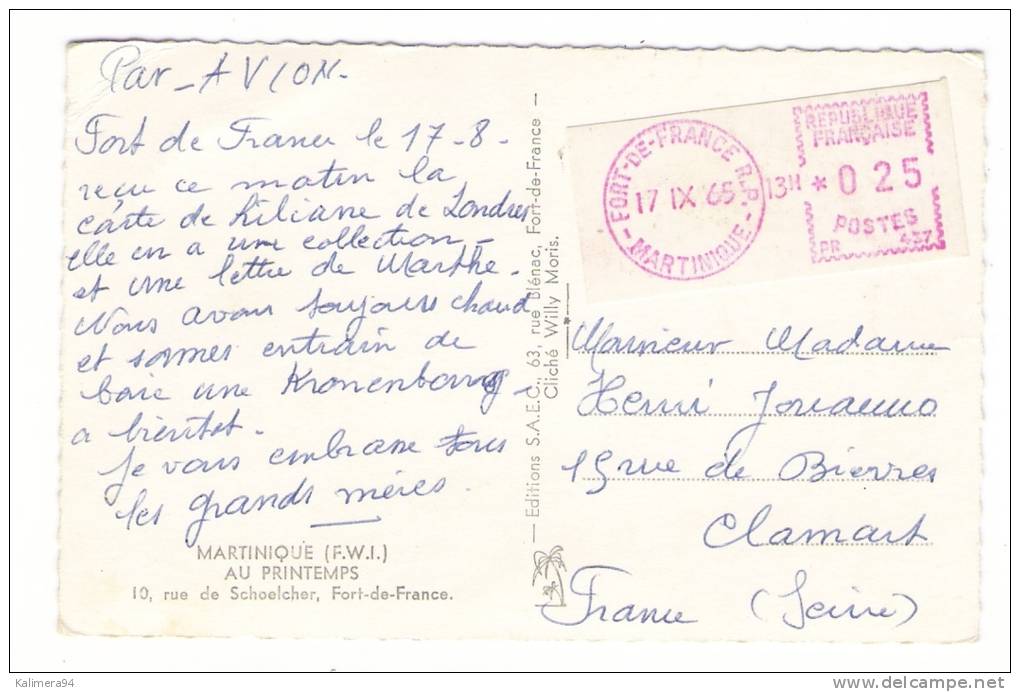 Par - AVION -
Fort de France le 17-8-
reçu ce matin la
carte de Liliane de Londres
elle en a une collection -
et une lettre de Marthe.
Nous avons toujours chaud
et sommes entrain de
boie une Kronenbourg -
a bientot.
Je vous embrasse tous
les grands mères.
MARTINIQUE (F.W.I.)
AU PRINTEMPS
10, rue de Schoelcher, Fort-de-France.
— Editions S.A.E.C., 63, rue Blénac, Fort-de-France —
Cliché Willy Moris.
FORT-DE-FRANCE R.P.
17 IX 65 13H
- MARTINIQUE -
REPUBLIQUE
FRANÇAISE
* 025
POSTES
PR
Monsieur Madame
Henri
15 rue de Bierres
Clamart
France (Seine)
Kalimera94
www.delcampe.net